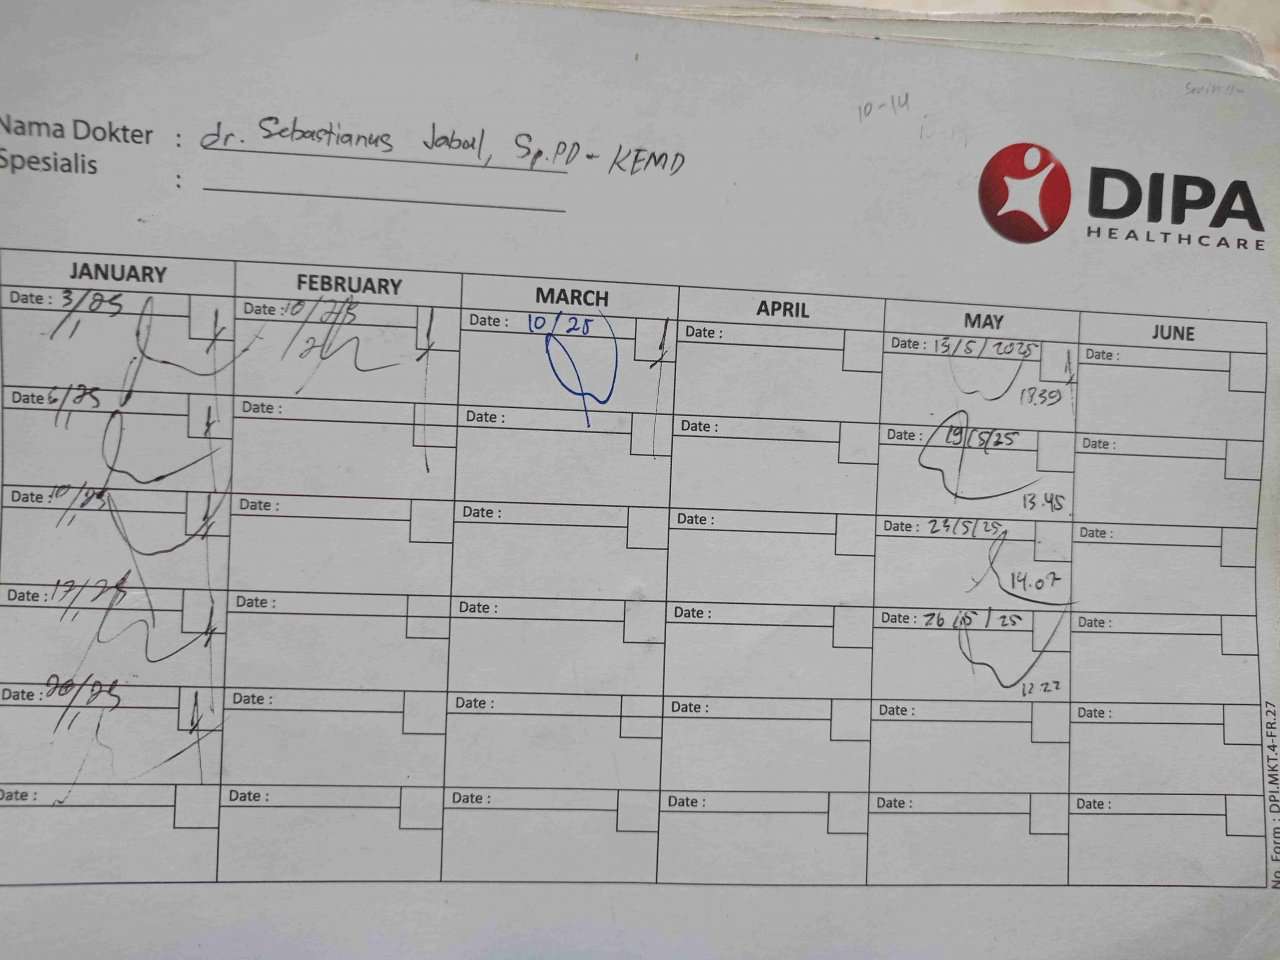 10-14
Nama Dokter : dr. Sebastianus Jabal, Sp.PD - KEMD
Spesialis :
DIPA
HEALTHCARE
JANUARY FEBRUARY MARCH APRIL MAY JUNE
Date : 3/1/25 Date : 10/2/25 Date : 10/25 Date : Date : 13/5/2025 Date :
18.39
Date : 6/1/25 Date : Date : Date : Date : 19/5/25 Date :
13.45
Date : 10/1/25 Date : Date : Date : Date : 23/5/25 Date :
14.07
Date : 17/1/25 Date : Date : Date : Date : 26/5/25 Date :
12.22
Date : 20/1/25 Date : Date : Date : Date : Date :
Date : Date : Date : Date : Date : Date :
No. Form : DPI.MKT.4-FR.27